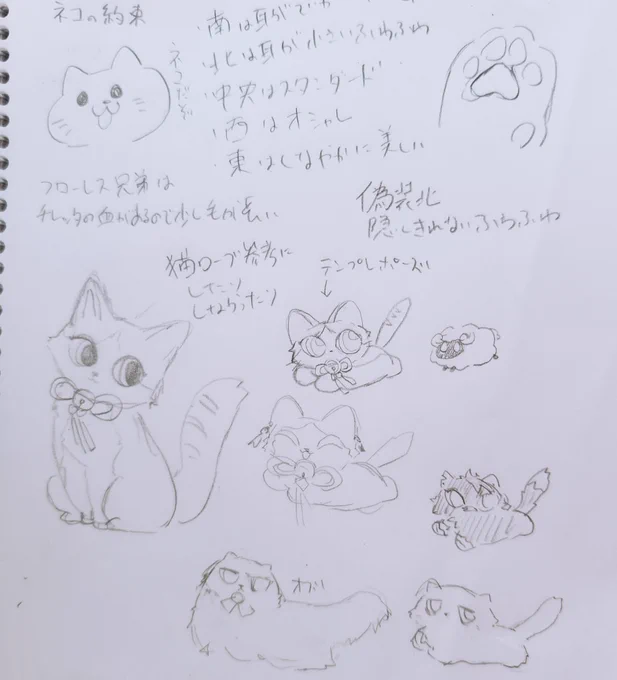 ネコの約束
・南は耳がでか
・北は耳が小さいふわふわ
・中央はスタンダード
・西はオシャレ
・東はしなやかに美しい
フローレス兄弟は
チレッタの血があるので少し毛が長い
偽装北
隠しきれないふわふわ
猫ローブ参考に
したり
しなかったり
テンプレポーズ
↓